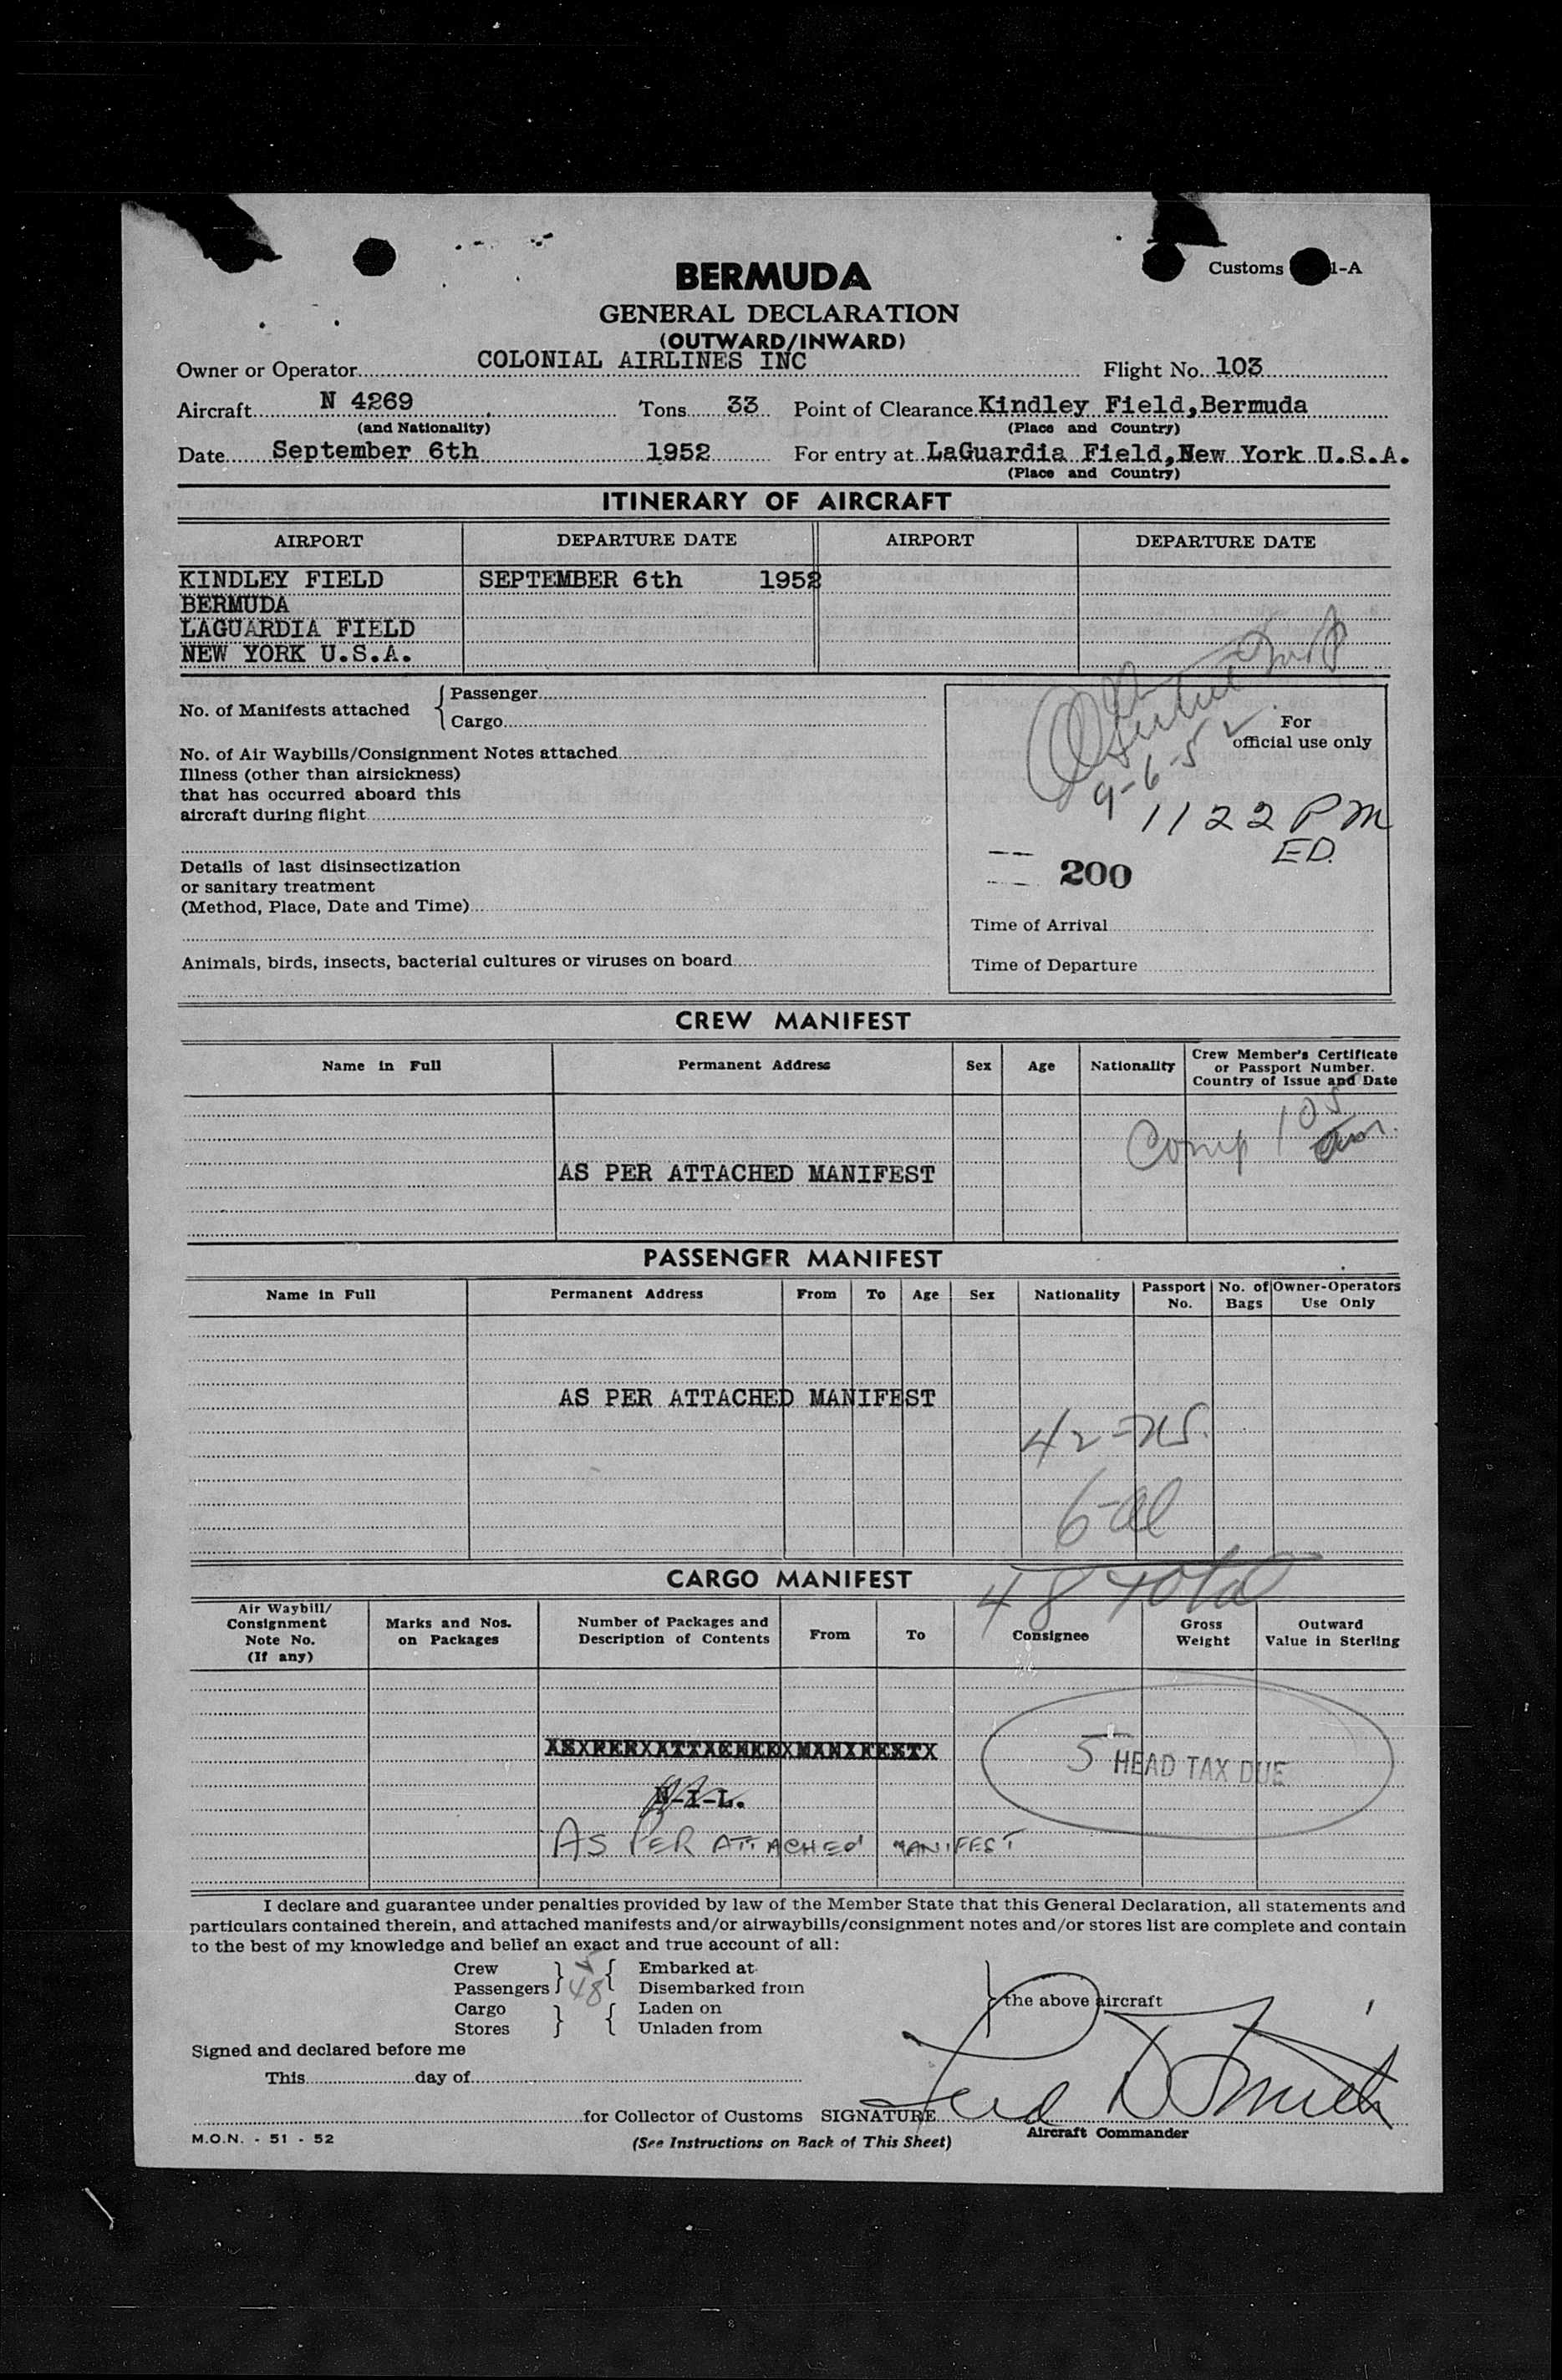 BERMUDA
Customs 1-A
GENERAL DECLARATION
(OUTWARD/INWARD)
Owner or Operator COLONIAL AIRLINES INC Flight No. 103
Aircraft N 4269 Tons 33 Point of Clearance Kindley Field, Bermuda
(and Nationality) (Place and Country)
Date September 6th 1952 For entry at LaGuardia Field, New York U.S.A.
(Place and Country)
ITINERARY OF AIRCRAFT
AIRPORT DEPARTURE DATE AIRPORT DEPARTURE DATE
KINDLEY FIELD SEPTEMBER 6th 1952
BERMUDA
LAGUARDIA FIELD
NEW YORK U.S.A.
No. of Manifests attached { Passenger
Cargo
No. of Air Waybills/Consignment Notes attached
Illness (other than airsickness)
that has occurred aboard this
aircraft during flight
Details of last disinsectization
or sanitary treatment
(Method, Place, Date and Time)
Animals, birds, insects, bacterial cultures or viruses on board
For
official use only
9-6-52
1122 PM
ED.
200
Time of Arrival
Time of Departure
CREW MANIFEST
Name in Full Permanent Address Sex Age Nationality Crew Member's Certificate
or Passport Number.
Country of Issue and Date
Comp 105
AS PER ATTACHED MANIFEST
PASSENGER MANIFEST
Name in Full Permanent Address From To Age Sex Nationality Passport No. No. of Bags Owner-Operators Use Only
AS PER ATTACHED MANIFEST
42-US.
6-al
48 total
CARGO MANIFEST
Air Waybill/
Consignment
Note No.
(If any)
Marks and Nos.
on Packages
Number of Packages and
Description of Contents
From To Consignee Gross
Weight
Outward
Value in Sterling
N-I-L.
5 HEAD TAX DUE
AS PER ATTACHED MANIFEST
I declare and guarantee under penalties provided by law of the Member State that this General Declaration, all statements and
particulars contained therein, and attached manifests and/or airwaybills/consignment notes and/or stores list are complete and contain
to the best of my knowledge and belief an exact and true account of all:
Crew } 5 { Embarked at
Passengers } 48 { Disembarked from
Cargo } { Laden on
Stores } { Unladen from
} the above aircraft
Signed and declared before me
This day of
for Collector of Customs SIGNATURE
Aircraft Commander
M.O.N. - 51 - 52
(See Instructions on Back of This Sheet)